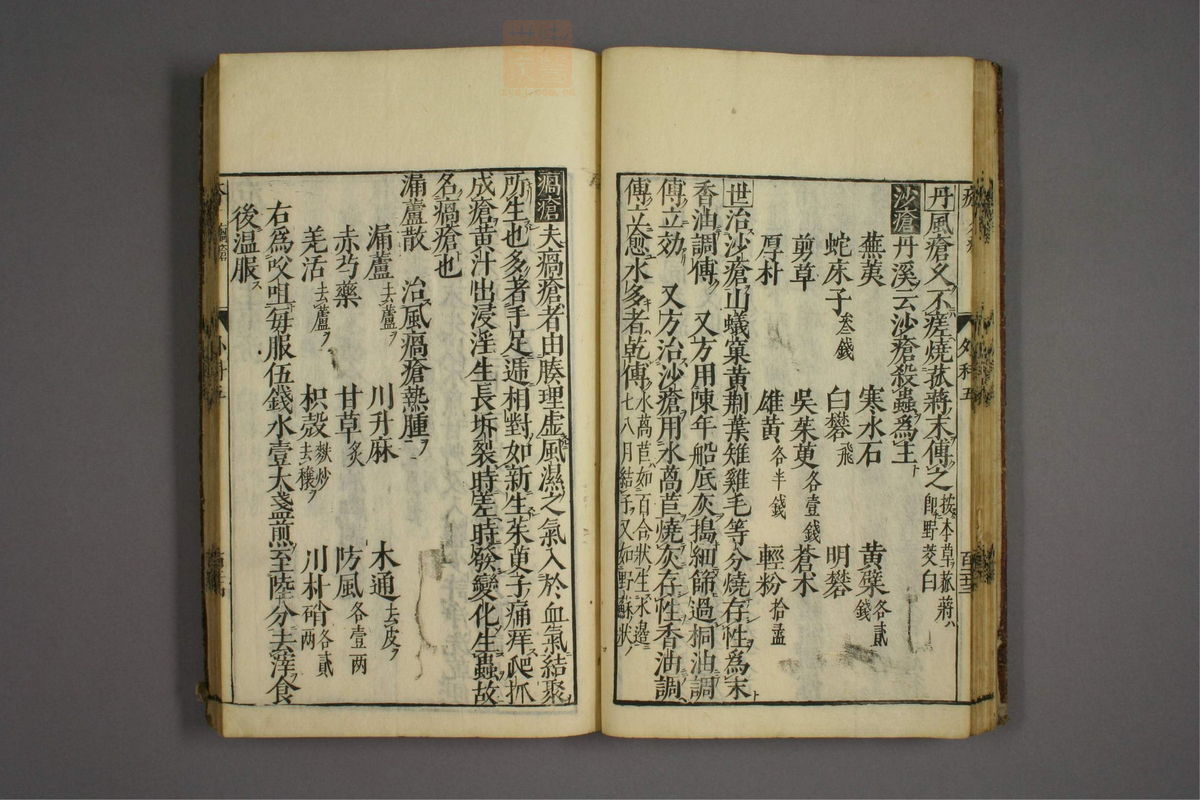 丹風瘡久不瘥燒菰蔣末傅之按本草菰蔣ハ即野茭白
沙瘡丹溪云沙瘡殺蟲爲主
蕪荑 寒水石 黃蘗各貳錢
蛇床子叁錢 白礬飛 明礬
剪草 吳茱萸各壹錢 蒼朮
厚朴 雄黃各半錢 輕粉拾盝
世治沙瘡山蟻窠黃荆葉雉雞毛等分燒存性爲末
香油調傅 又方用陳年船底灰搗細篩過桐油調
傅立効 又方治沙瘡用水萵苣燒灰存性香油調
傅立愈水多者乾傅水萵苣如百合狀生水邊七八月結子又如野蘇狀
瘑瘡夫瘑瘡者由腠理虛風濕之氣入於血氣結聚
所生也多著手足遞相對如新生茱萸子痛痒爬抓
成瘡黃汁出浸淫生長坼裂時瘥時發變化生蟲故
名瘑瘡也
漏蘆散 治風瘑瘡熱腫
漏蘆去蘆 川升麻 木通去皮
赤芍藥 甘草炙 防風各壹两
羌活去蘆 枳殼麩炒去穰 川朴硝各貳两
右爲㕮咀每服伍錢水壹大盞煎至陸分去滓食
後温服
外科五